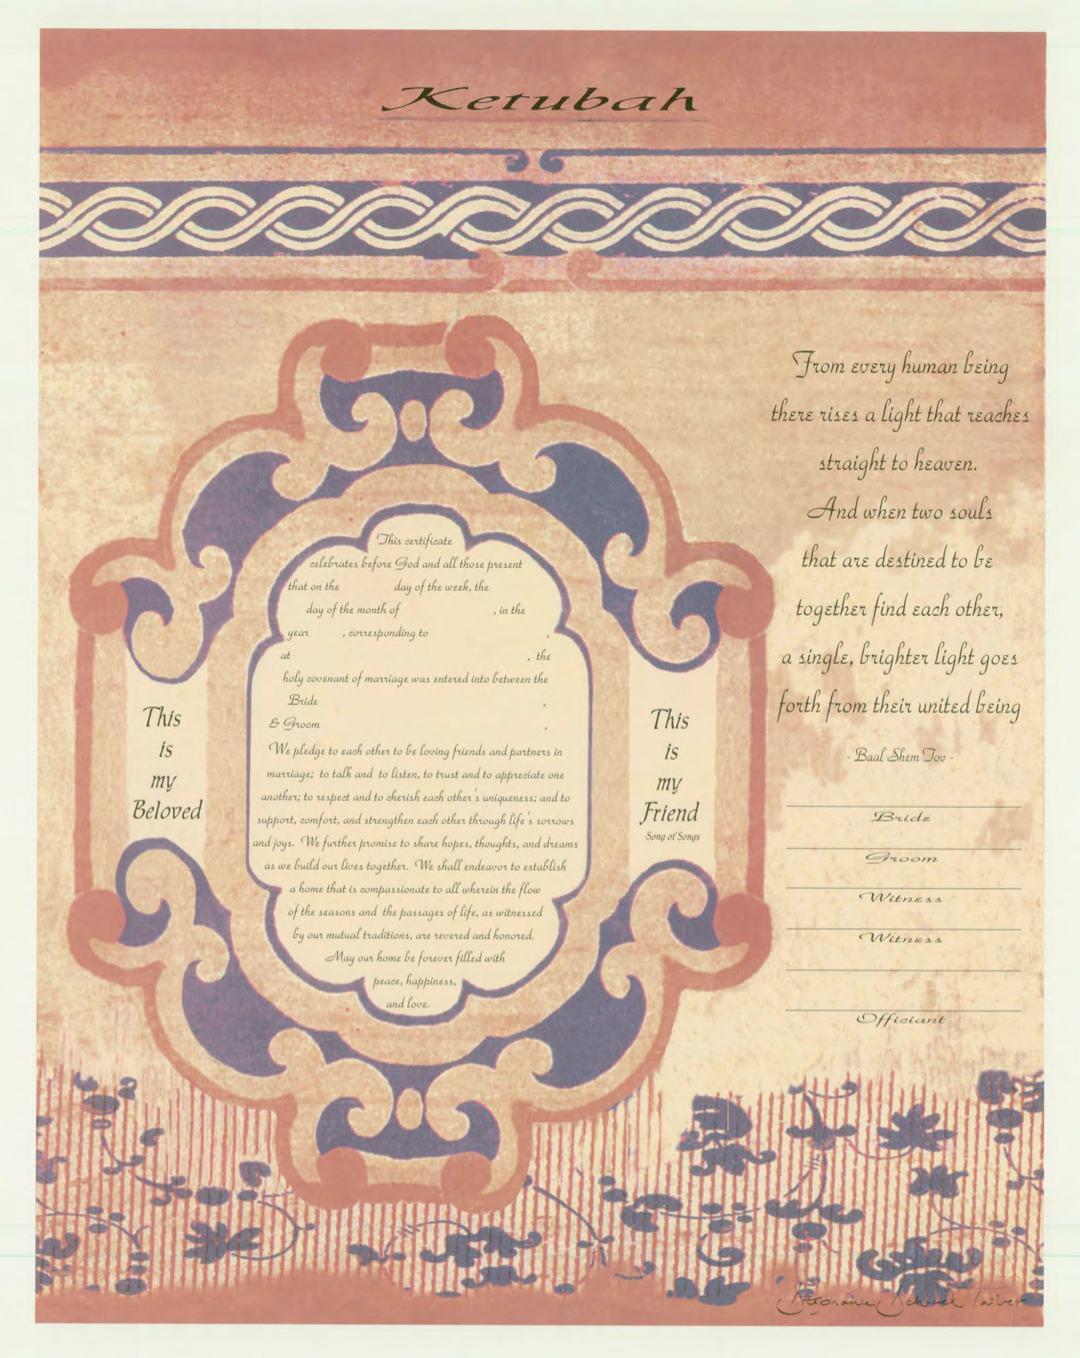 Ketubah
This certificate
celebrates before God and all those present
that on the day of the week, the
day of the month of , in the
year , corresponding to ,
at , the
holy covenant of marriage was entered into between the
Bride ,
& Groom ,
We pledge to each other to be loving friends and partners in
marriage; to talk and to listen, to trust and to appreciate one
another; to respect and to cherish each other's uniqueness; and to
support, comfort, and strengthen each other through life's sorrows
and joys. We further promise to share hopes, thoughts, and dreams
as we build our lives together. We shall endeavor to establish
a home that is compassionate to all wherein the flow
of the seasons and the passages of life, as witnessed
by our mutual traditions, are revered and honored.
May our home be forever filled with
peace, happiness,
and love.
This
is
my
Beloved
This
is
my
Friend
Song of Songs
From every human being
there rises a light that reaches
straight to heaven.
And when two souls
that are destined to be
together find each other,
a single, brighter light goes
forth from their united being
- Baal Shem Tov -
Bride
Groom
Witness
Witness
Officiant
Stephanie